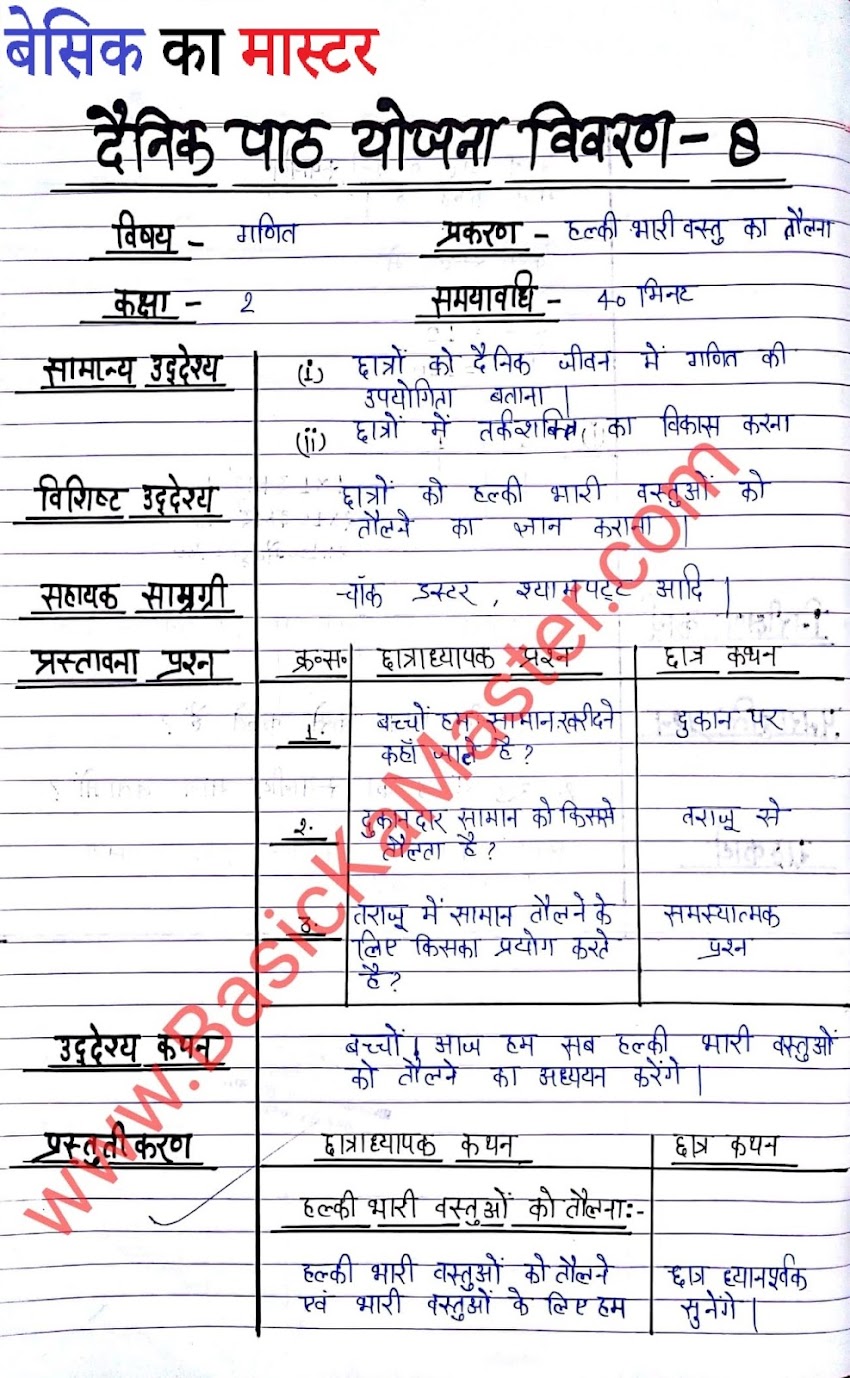 बेसिक का मास्टर
दैनिक पाठ योजना विवरण - 8
विषय - गणित प्रकरण - हल्की भारी वस्तु का तौलना
कक्षा - 2 समयावधि - 40 मिनट
सामान्य उद्देश्य (i) छात्रों को दैनिक जीवन में गणित की
उपयोगिता बताना |
(ii) छात्रों में तर्कशक्ति का विकास करना
विशिष्ट उद्देश्य छात्रों को हल्की भारी वस्तुओं को
तौलने का ज्ञान कराना |
सहायक सामग्री चॉक डस्टर , श्यामपट्ट आदि |
प्रस्तावना प्रश्न क्र०स० छात्राध्यापक प्रश्न छात्र कथन
1. बच्चों हम सामान खरीदने दुकान पर
कहाँ जाते है ?
2. दुकानदार सामान को किससे तराजू से
तौलता है ?
3. तराजू में सामान तौलने के समस्यात्मक
लिए किसका प्रयोग करते प्रश्न
है ?
उद्देश्य कथन बच्चों | आज हम सब हल्की भारी वस्तुओं
को तौलने का अध्ययन करेंगे |
प्रस्तुतीकरण छात्राध्यापक कथन छात्र कथन
हल्की भारी वस्तुओं को तौलना :-
हल्की भारी वस्तुओं को तौलने छात्र ध्यानपूर्वक
एवं भारी वस्तुओं के लिए हम सुनेंगे |
www.BasicKaMaster.com